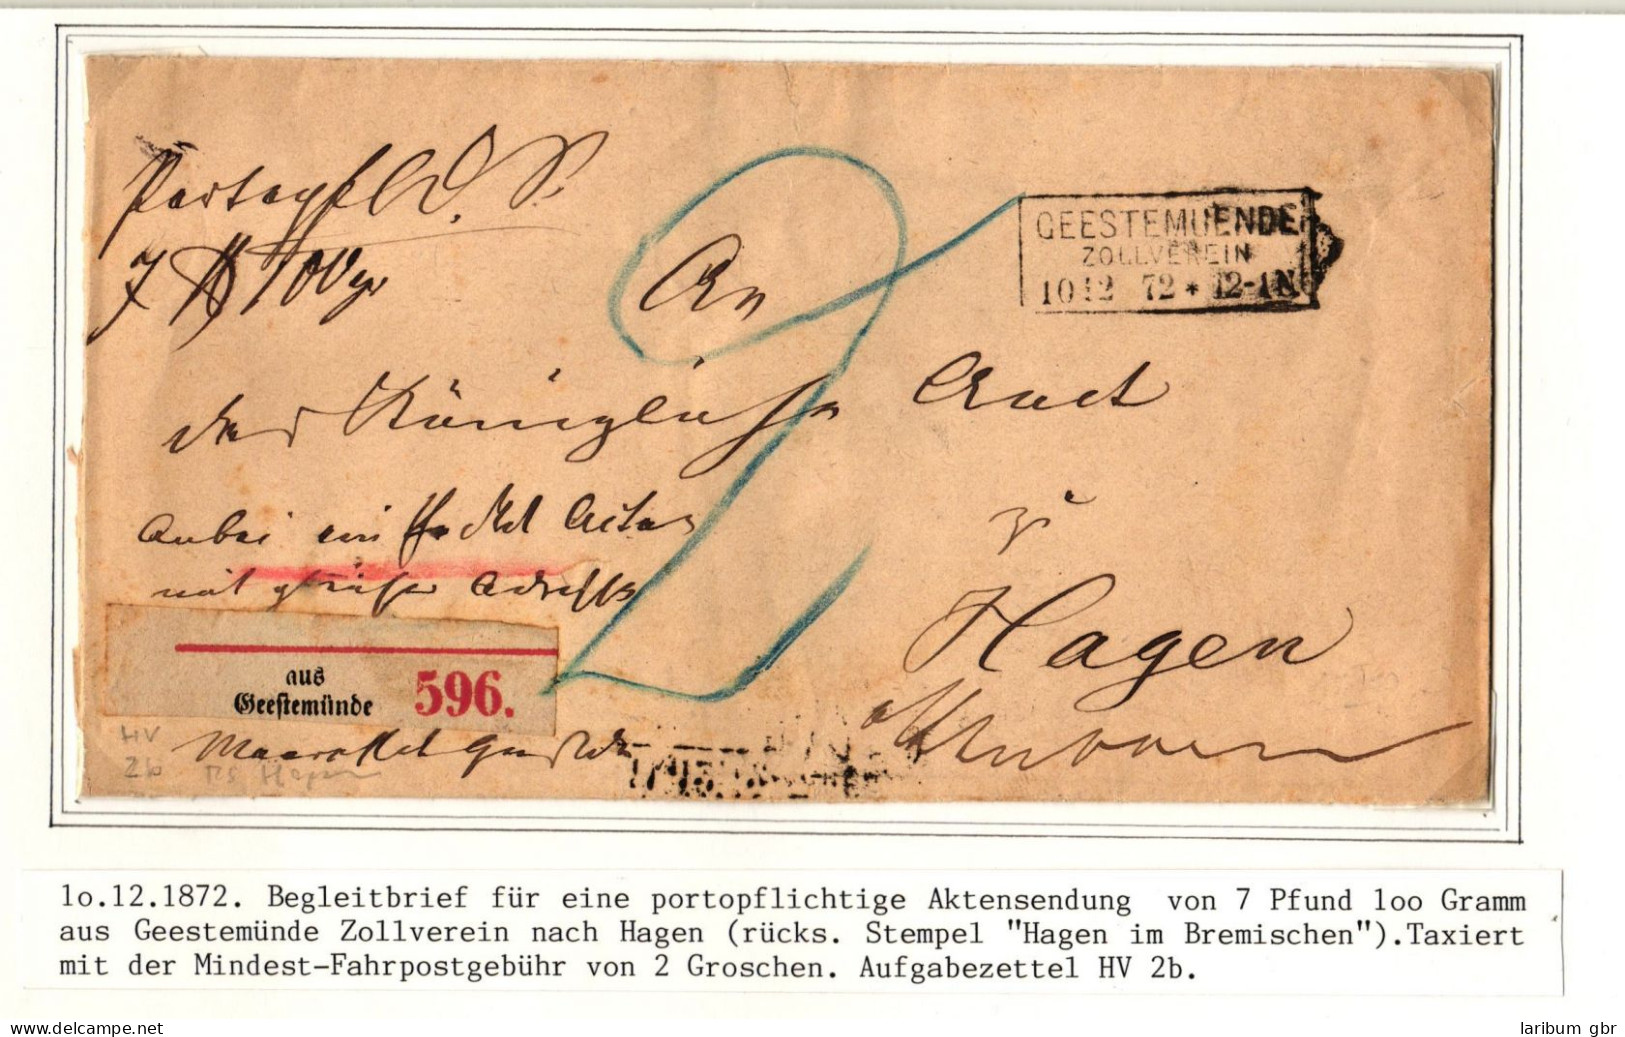 Portopfl. D. S.
7 ℔ 100 gr
An
GEESTEMUENDE
ZOLLVEREIN
10 12 72 * 12-1N
das Königliche Amt
Anbei ein Packet Acten
mit gleicher Adresse
zu
Hagen
aus
Geestemünde 596.
HV
2b RS Hagen
1o.12.1872. Begleitbrief für eine portopflichtige Aktensendung von 7 Pfund 1oo Gramm
aus Geestemünde Zollverein nach Hagen (rücks. Stempel "Hagen im Bremischen").Taxiert
mit der Mindest-Fahrpostgebühr von 2 Groschen. Aufgabezettel HV 2b.
www.delcampe.net
laribum gbr